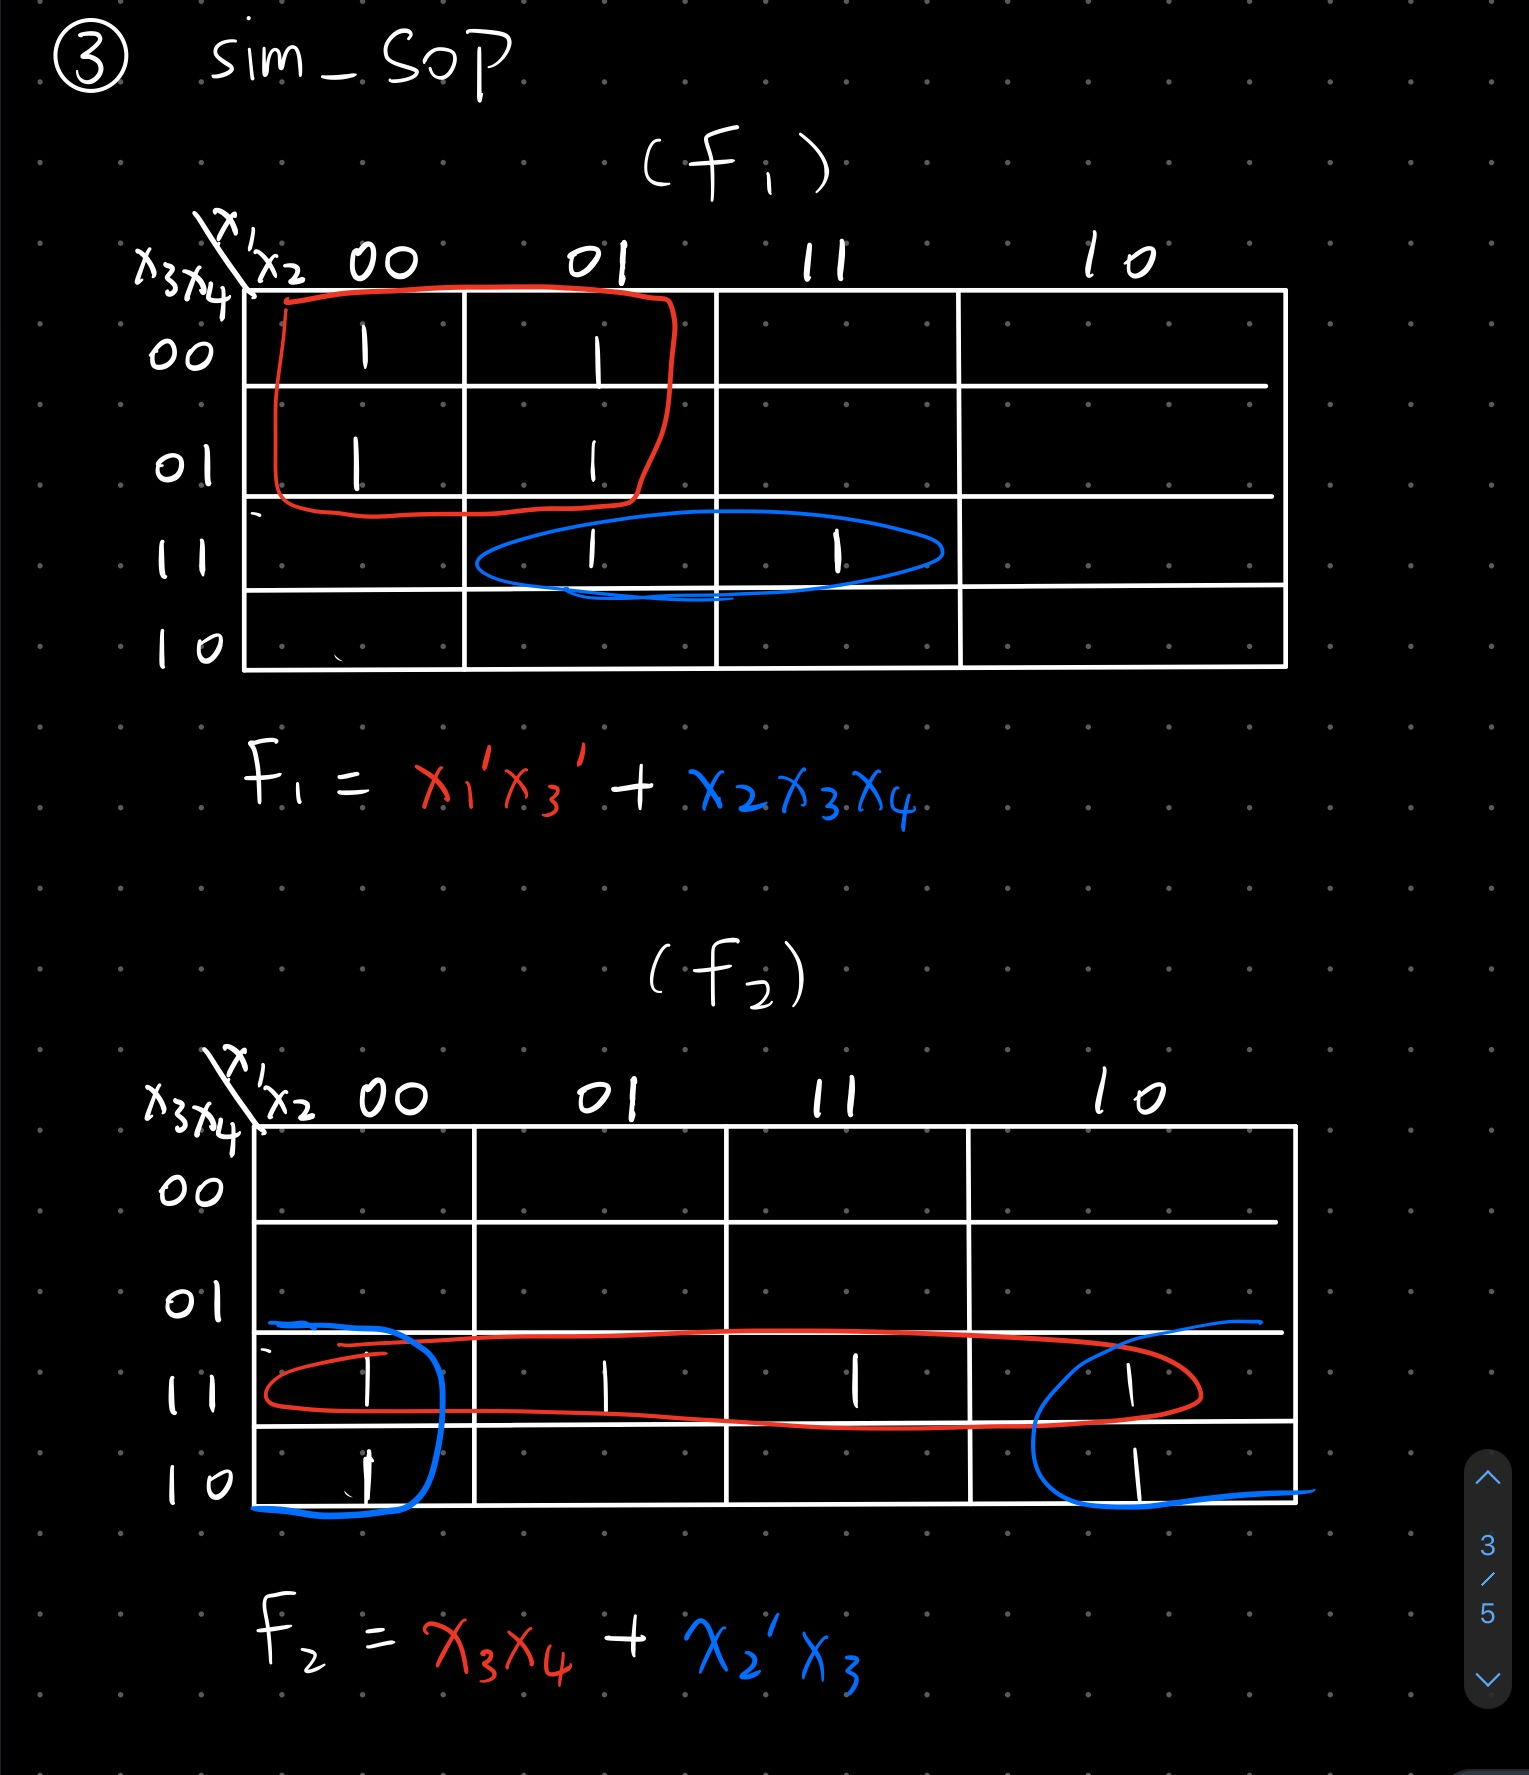 ③ sim_SOP
(F₁)
x₁x₂ 00 01 11 10
x₃x₄
00 1 1
01 1 1
11 1 1
10
F₁ = x₁'x₃' + x₂x₃x₄
(F₂)
x₁x₂ 00 01 11 10
x₃x₄
00
01
11 1 1 1 1
10 1 1
F₂ = x₃x₄ + x₂'x₃
3
/
5